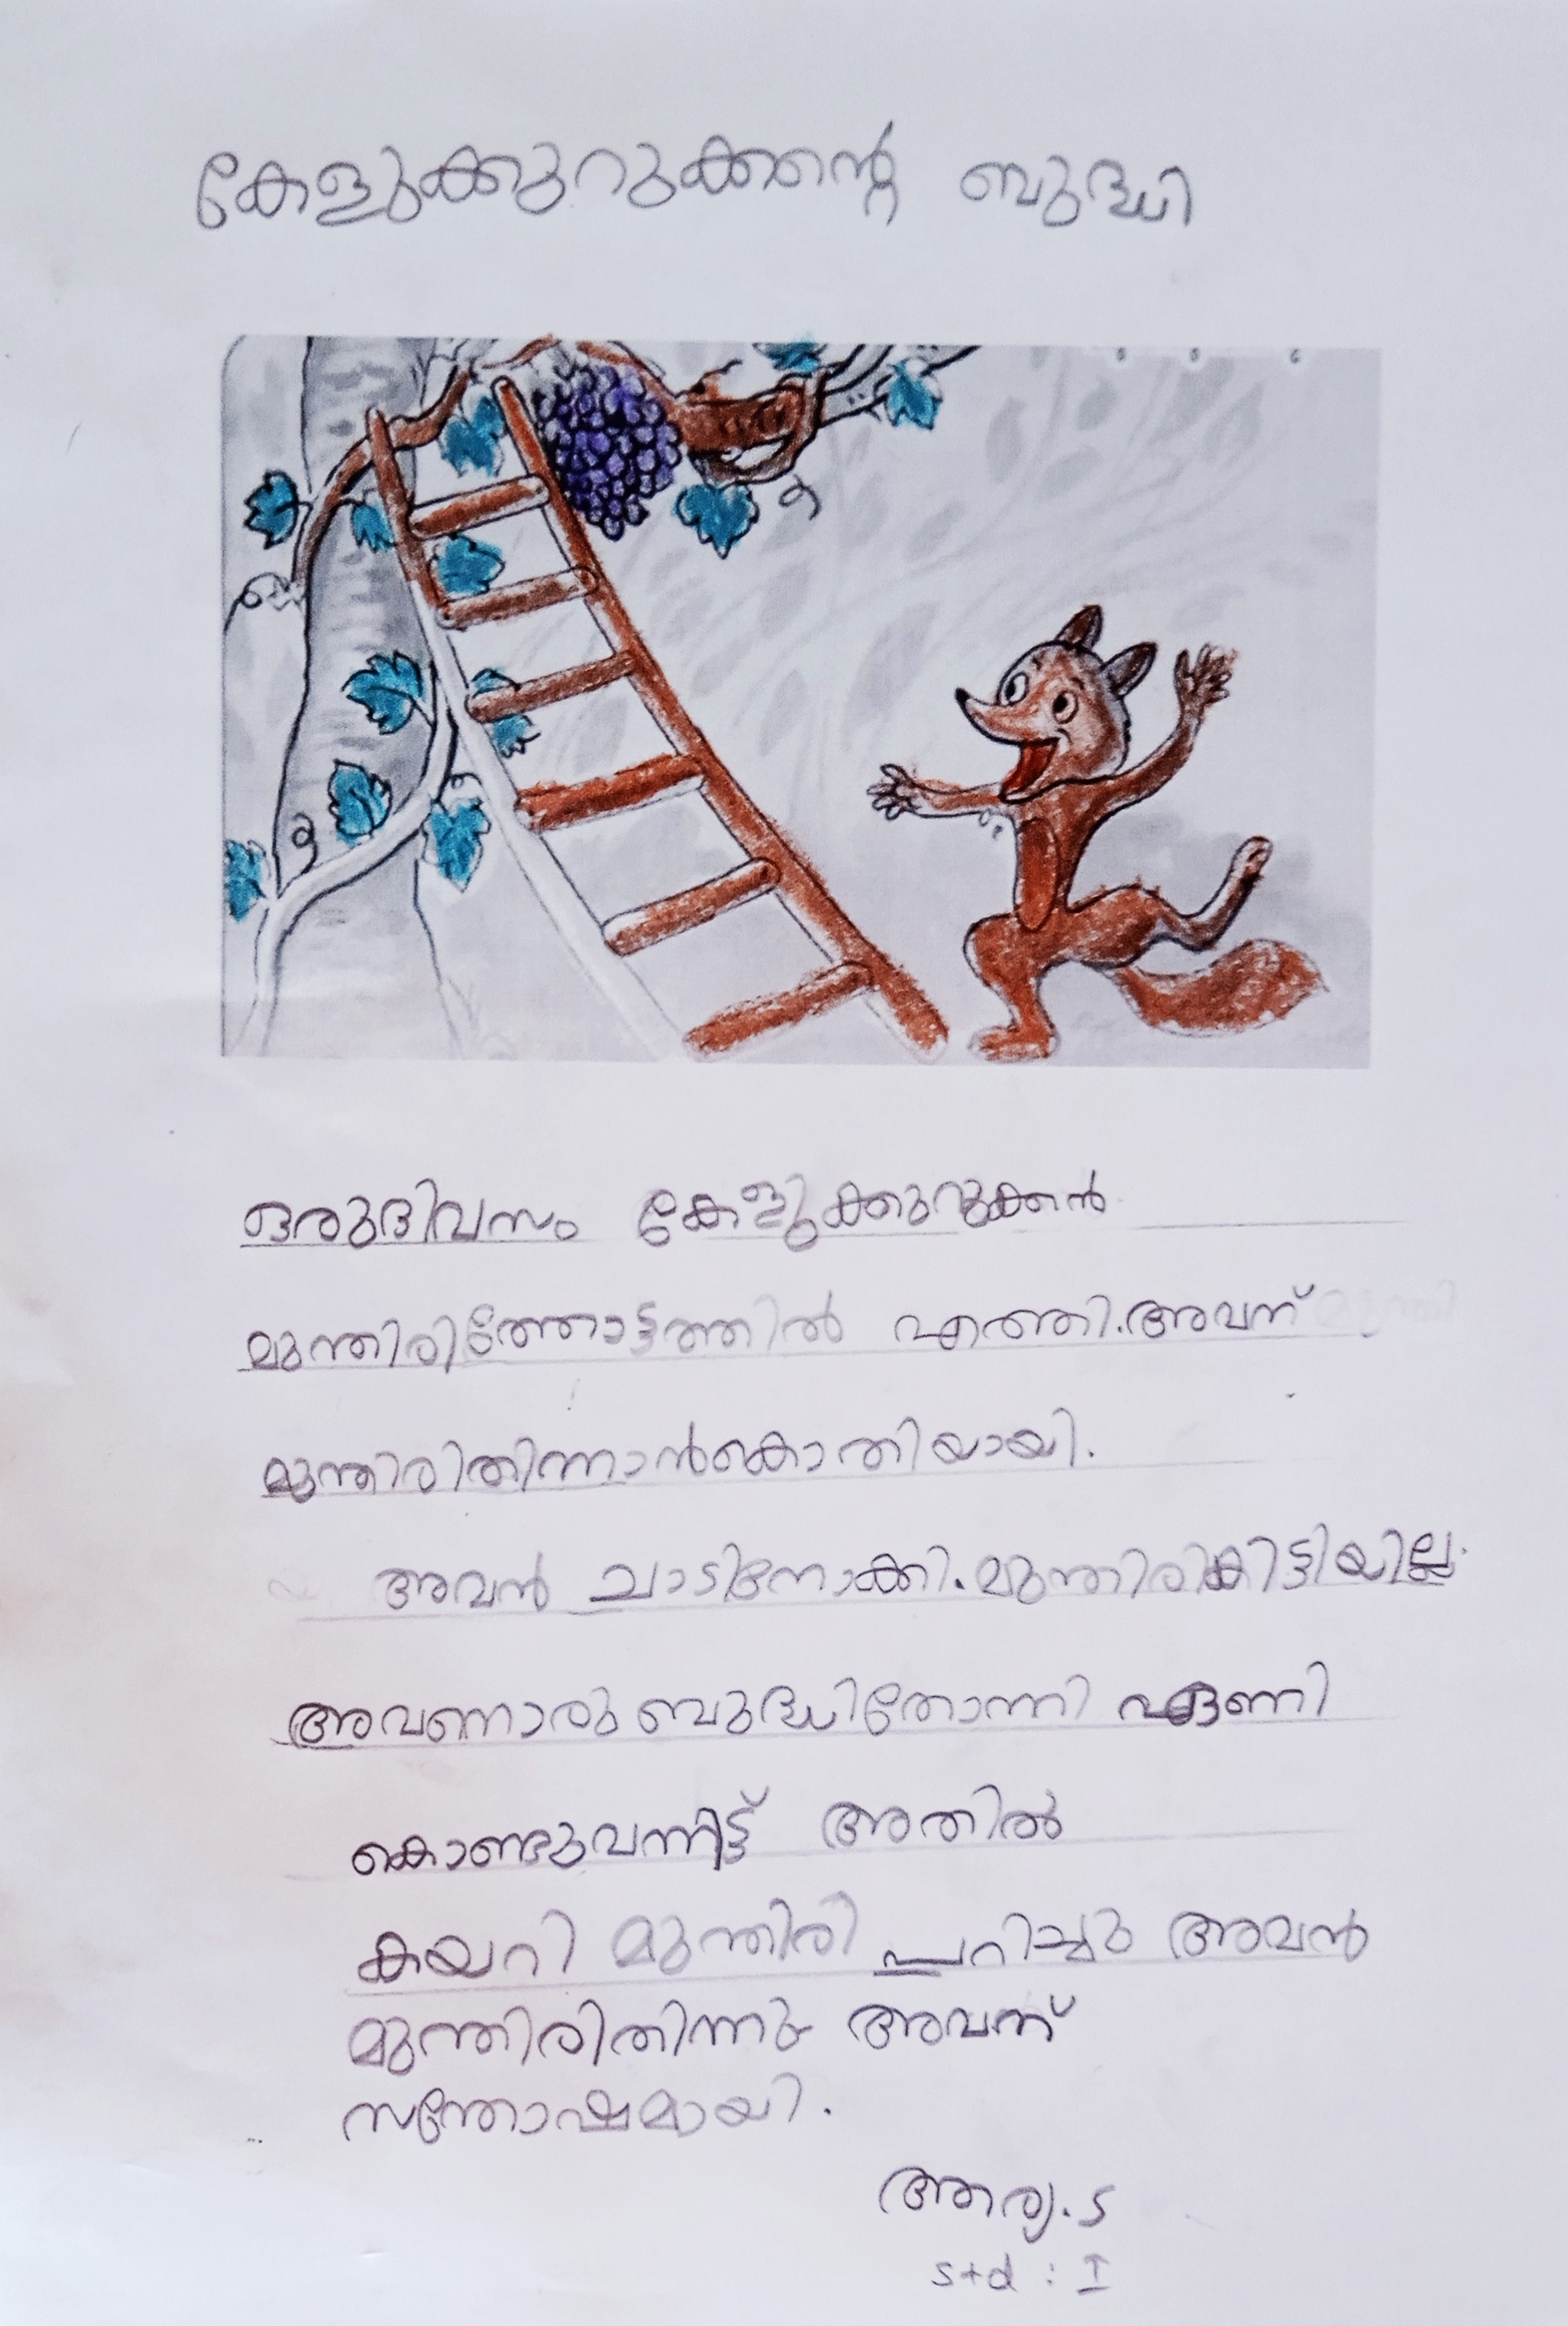 കേളുക്കുറുക്കന്റെ ബുദ്ധി
ഒരുദിവസം കേളുക്കുറുക്കൻ
മുന്തിരിത്തോട്ടത്തിൽ എത്തി.അവന്
മുന്തിരിതിന്നാൻകൊതിയായി.
അവൻ ചാടിനോക്കി.മുന്തിരികിട്ടിയില്ല.
അവനൊരു ബുദ്ധിതോന്നി ഏണി
കൊണ്ടുവന്നിട്ട് അതിൽ
കയറി മുന്തിരി പറിച്ചു അവൻ
മുന്തിരിതിന്നു അവന്
സന്തോഷമായി.
ആര്യ.s
std : I